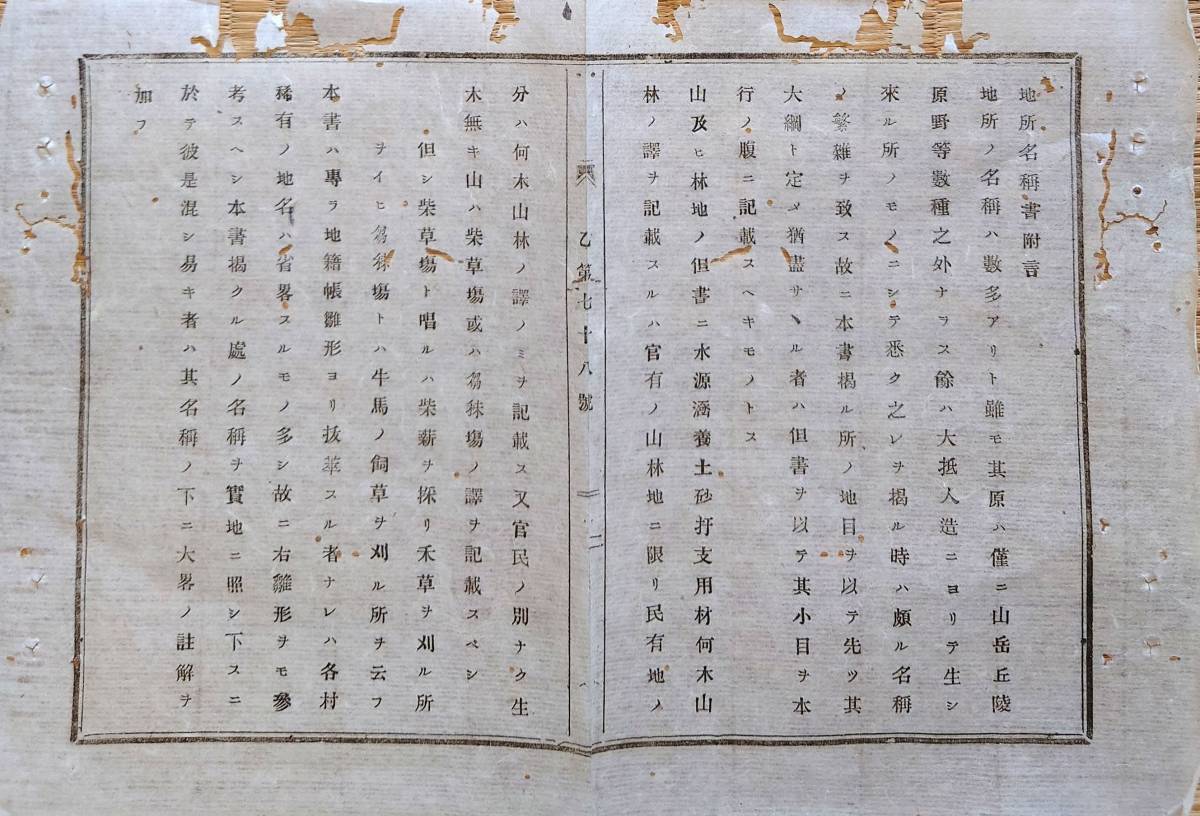 地所名稱書附言
地所ノ名稱ハ數多アリト雖モ其原ハ僅ニ山岳丘陵
原野等數種之外ナラス餘ハ大抵人造ニヨリテ生シ
來ル所ノモノニシテ悉ク之レヲ揭ル時ハ頗ル名稱
ノ繁雜ヲ致ス故ニ本書揭ル所ノ地目ヲ以テ先ツ其
大綱ト定メ猶盡サヽル者ハ但書ヲ以テ其小目ヲ本
行ノ腹ニ記載スヘキモノトス
山及ヒ林地ノ但書ニ水源涵養土砂扞支用材何木山
林ノ譯ヲ記載スルハ官有ノ山林地ニ限リ民有地ノ
乙第七十八號
二
分ハ何木山林ノ譯ノミヲ記載ス又官民ノ別ナク生
木無キ山ハ柴草塲或ハ芻秣塲ノ譯ヲ記載スベシ
但シ柴草塲ト唱ルハ柴薪ヲ採リ禾草ヲ刈ル所
ヲイヒ芻秣塲トハ牛馬ノ飼草ヲ刈ル所ヲ云フ
本書ハ專ラ地籍帳雛形ヨリ抜萃スル者ナレハ各村
稀有ノ地名ハ省畧スルモノ多シ故ニ右雛形ヲモ參
考スヘシ本書揭クル處ノ名稱ヲ實地ニ照シ下スニ
於テ彼是混シ易キ者ハ其名稱ノ下ニ大畧ノ註解ヲ
加フ